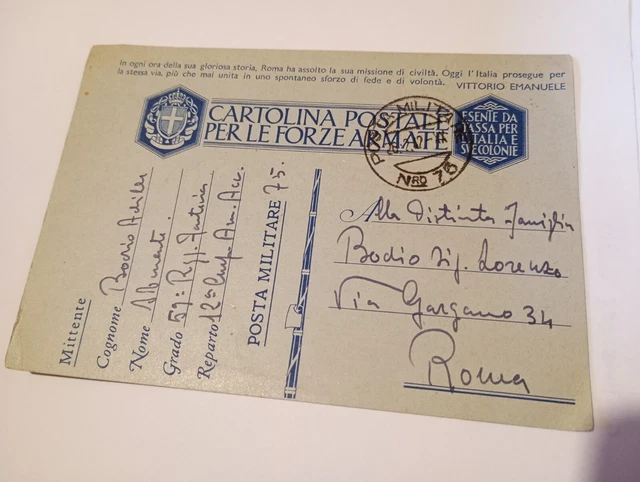 In ogni ora della sua gloriosa storia, Roma ha assolto la sua missione di civiltà. Oggi l'Italia prosegue per
la stessa via, più che mai unita in uno spontaneo sforzo di fede e di volontà.
VITTORIO EMANUELE
CARTOLINA POSTALE
PER LE FORZE ARMATE
ESENTE DA
TASSA PER
ITALIA E
SUE COLONIE
POSTA MILITARE
NRO 75
Mittente
Cognome Bodio
Nome
Grado 59º Regg. Fanteria
Reparto 12ª Comp.
POSTA MILITARE 75.
Alla Distinta Famiglia
Bodio Sig. Lorenzo
Via Gargano 34
Roma